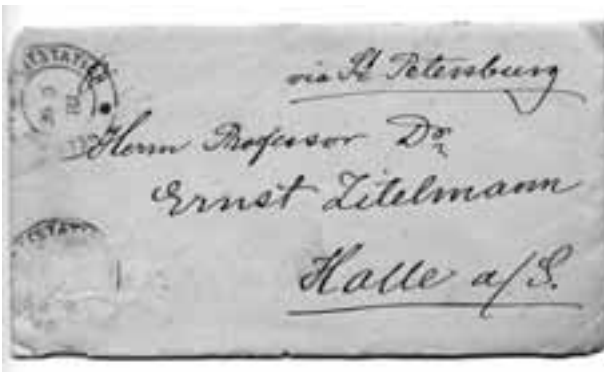 via St. Petersburg
Herrn Professor Dr.
Ernst Zitelmann
Halle a/S.